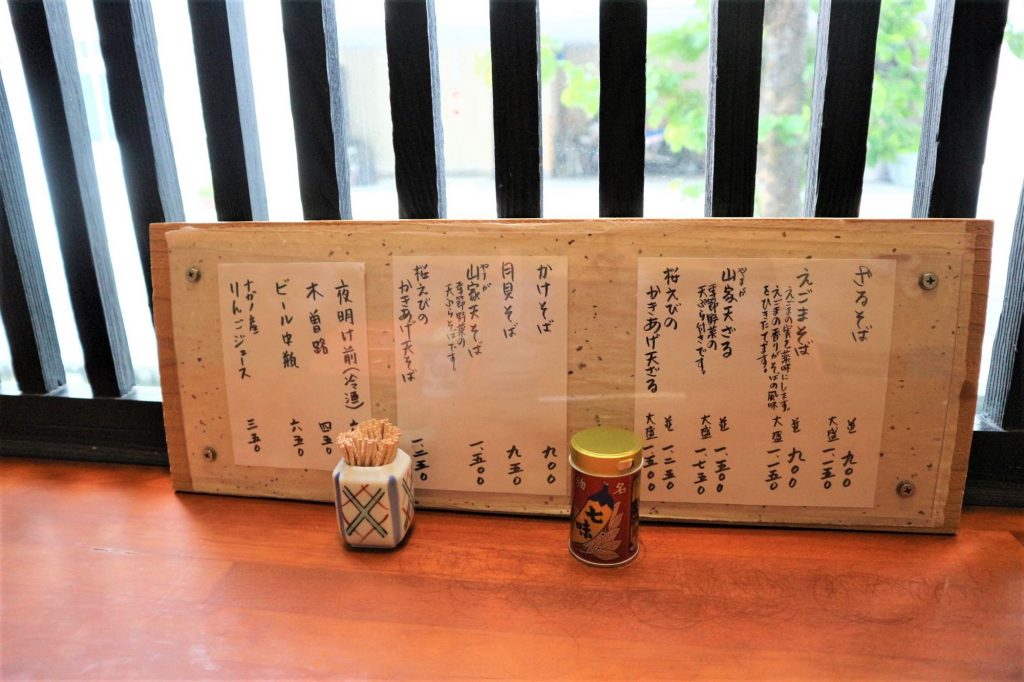 ざるそば 並 九〇〇
大盛 一.一五〇
えごまそば 並 九〇〇
えごまの実を薬味にします。
えごまの香りがそばの風味
をひきたてます。
大盛 一.一五〇
やまが
山家天ざる 並 一.五〇〇
季節野菜の
天ぷら付きです。
大盛 一.七五〇
桜えびの 並 一.二五〇
かきあげ天ざる 大盛 一.五〇〇
かけそば 九〇〇
月見そば 九五〇
やまが
山家天そば 一.五〇〇
季節野菜の
天ぷらそばです。
桜えびの
かきあげ天そば 一.二五〇
夜明け前(冷酒)
木曽路 四五〇
ビール中瓶 六五〇
ナガノ産
りんごジュース 三五〇
名物
七味